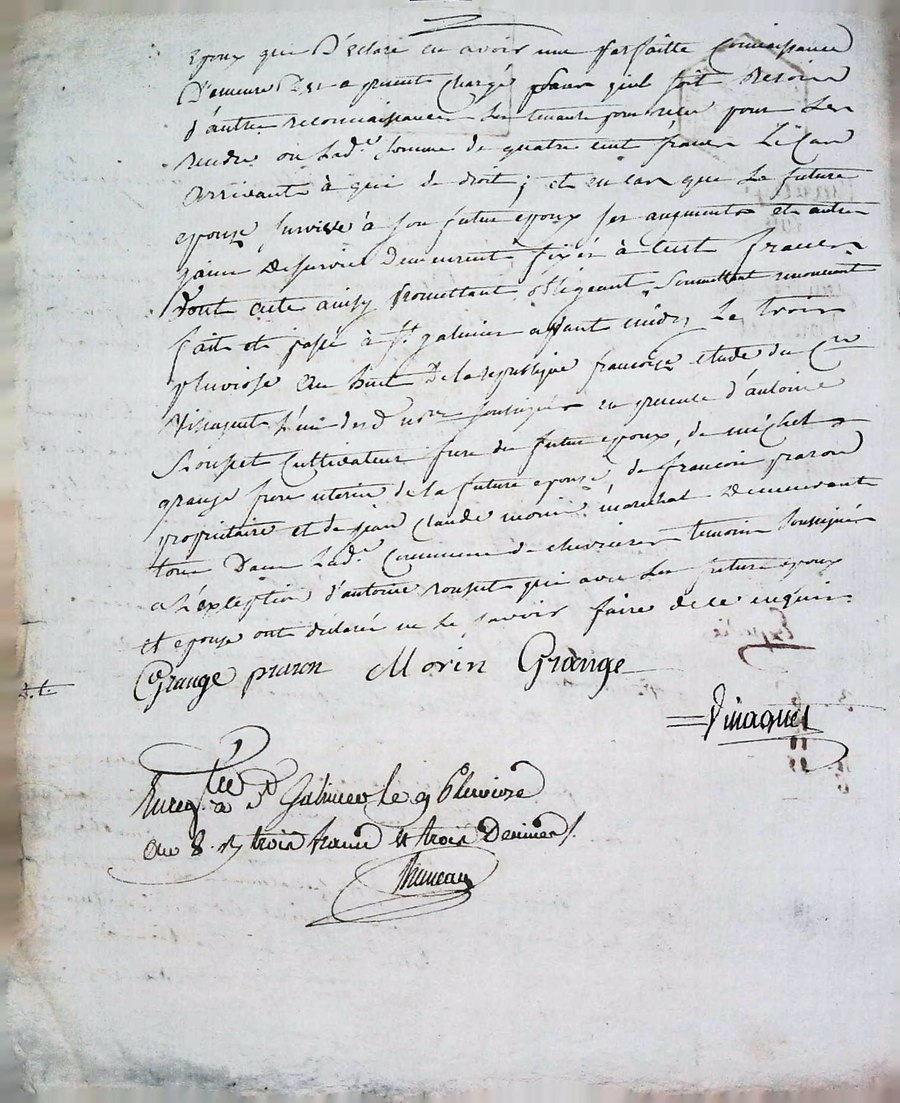 epoux qui Declare en avoir une parfaitte Connoissance
Demeure Des a present Chargé sans quil soit Besoin
d'autre reconnoissance Les tenant pour Les
rendre ou Lad.e Somme de quatre cent francs Le Cas
arrivant à qui de droit; et en cas que La future
epouse survive à son futur epoux ses augments et autres
gains De survie Demeurent fixés à cent francs
Dont acte ainsy promettant obligeant, soumettant renonçant
fait et passé à St galmier avant midy Le trois
pluviose an huit De la republique françoise etude du Cen
L'un des d. nores soussignés en presence d'antoine
rousset Cultivateur frere du futur epoux, de michel
grange frere uterin de la future epouse, de francois praron
propriétaire et de jean Claude morin marechal Demeurants
tous Dans Lad.e Commune de chevrieres temoins soussignés
a L'exception d'antoine rousset qui avec Les futurs epoux
et epouse ont declaré ne le savoir faire de ce enquis.
Grange praron Morin Grange
Enreg.tré à St Galmier le 9 Pluviose
an 8. trois francs et trois Decimes